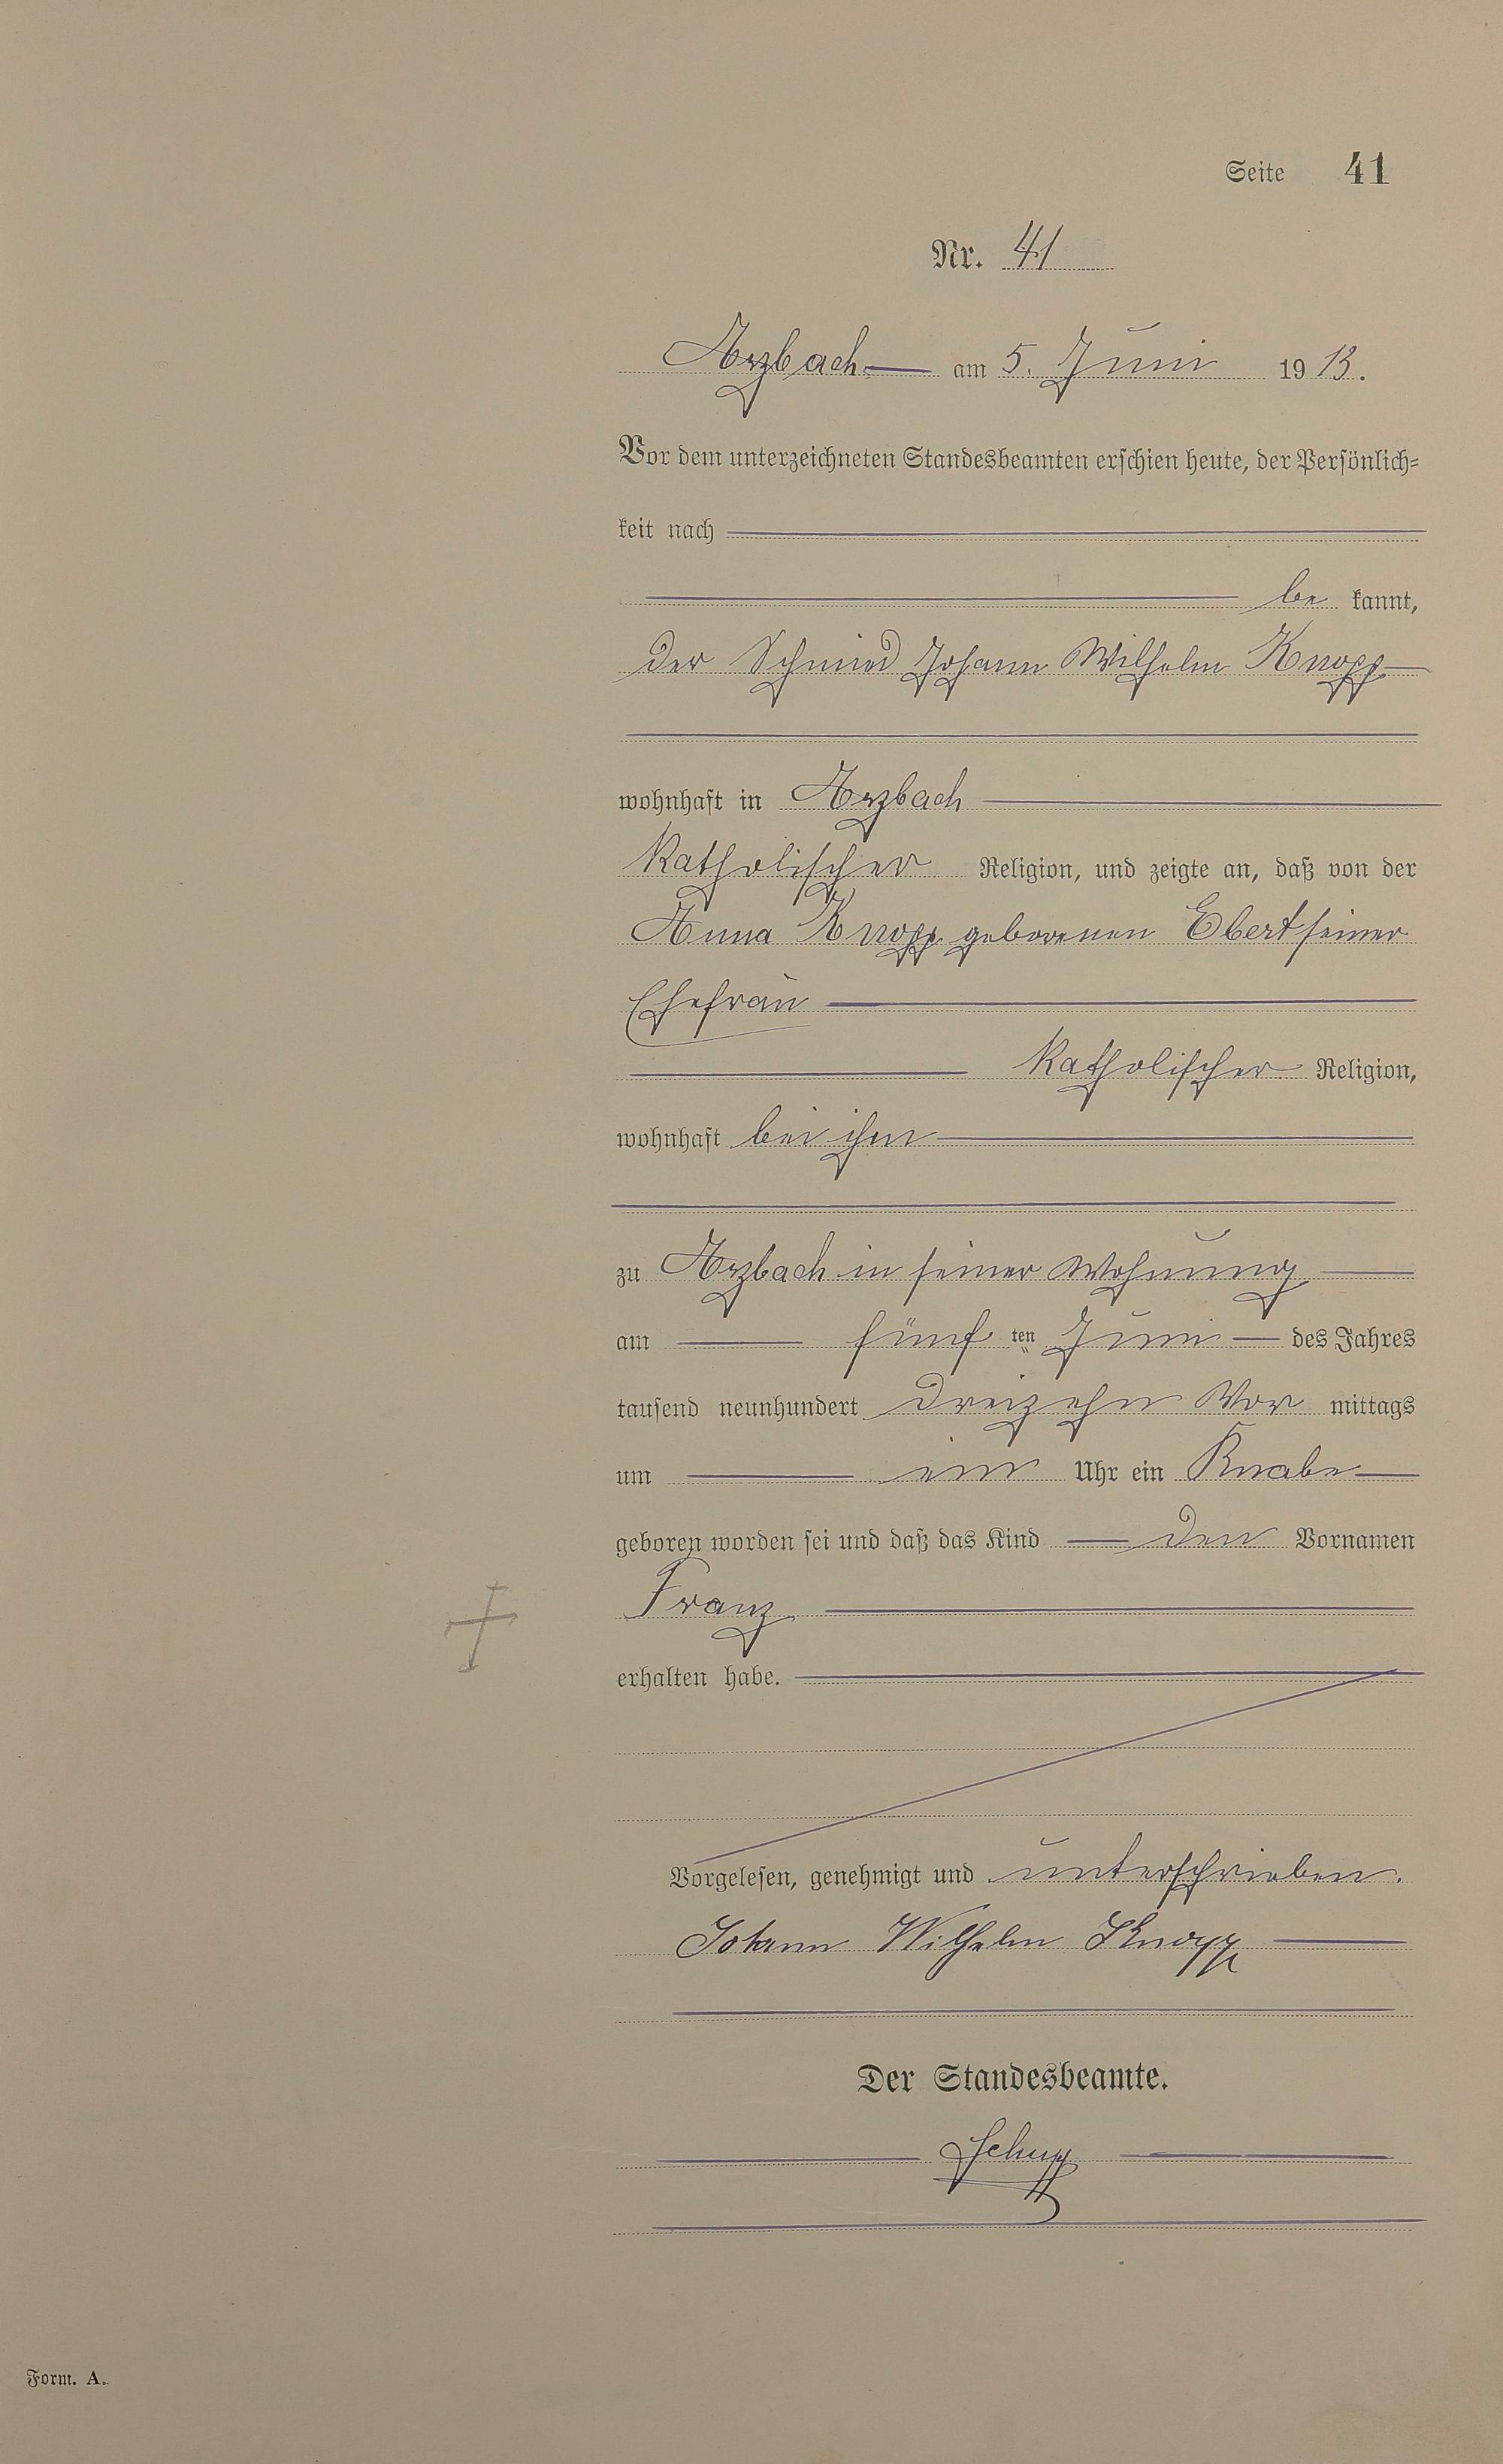 Seite 41
Nr. 41
Arzbach am 5. Juni 1913.
Vor dem unterzeichneten Standesbeamten erschien heute, der Persönlich-
keit nach
be kannt,
der Schmied Johann Wilhelm Knopp
wohnhaft in Arzbach
katholischer Religion, und zeigte an, daß von der
Anna Knopp geborenen Ebert seiner
Ehefrau
katholischer Religion,
wohnhaft bei ihm
zu Arzbach in seiner Wohnung
am fünf ten Juni des Jahres
tausend neunhundert dreizehn Vor mittags
um ein Uhr ein Knabe
geboren worden sei und daß das Kind den Vornamen
Franz
erhalten habe.
Vorgelesen, genehmigt und unterschrieben.
Johann Wilhelm Knopp
Der Standesbeamte.
Schupp
Form. A.